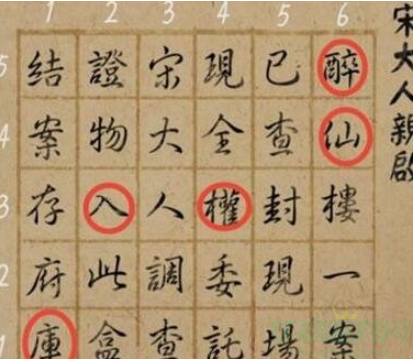 1 2 3 4 5 6
宋大人親啟
醉仙樓一案
已查封現場
現全權委託
宋大人調查
證物入此盒
結案存府庫
5
4
3
2
1